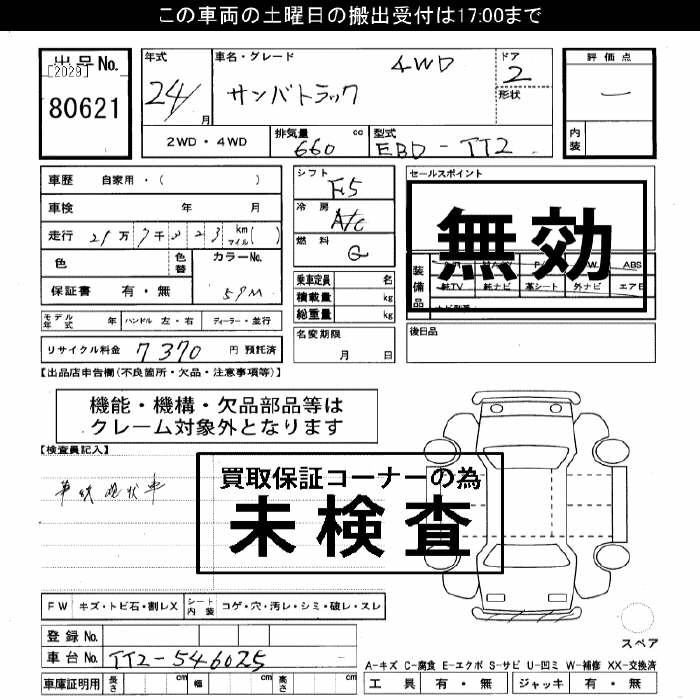 この車両の土曜日の搬出受付は17:00まで
出品No.
[2029]
80621
年式
24/
月
車名・グレード
4WD
サンバトラック
ドア
2
形状
評価点
—
内装
2WD・4WD
排気量 cc
660
型式
EBD-TT2
車歴 自家用・( )
車検 年 月
走行 21万7千 23 km マイル( )
色 色替 カラーNo.
保証書 有・無
59M
モデル年式 年 ハンドル 左・右 ディーラー・並行
リサイクル料金 7370 円 預託済
シフト
F5
冷房
A/C
燃料
G
乗車定員 名
積載量 kg
総重量 kg
名変期限
月 日
セールスポイント
無効
装備品
ABS
純TV 純ナビ 革シート 外ナビ エアB
後日品
【出品店申告欄(不良箇所・欠品・注意事項等)】
機能・機構・欠品部品等は
クレーム対象外となります
【検査員記入】
買取保証コーナーの為
未検査
FW キズ・トビ石・割レX シート内装 コゲ・穴・汚レ・シミ・破レ・スレ
登録No.
車台No. TT2-546025
車庫証明用 長さ cm 幅 cm 高さ cm
スペア
A-キズ C-腐食 E-エクボ S-サビ U-凹ミ W-補修 XX-交換済
工具 有・無 ジャッキ 有・無